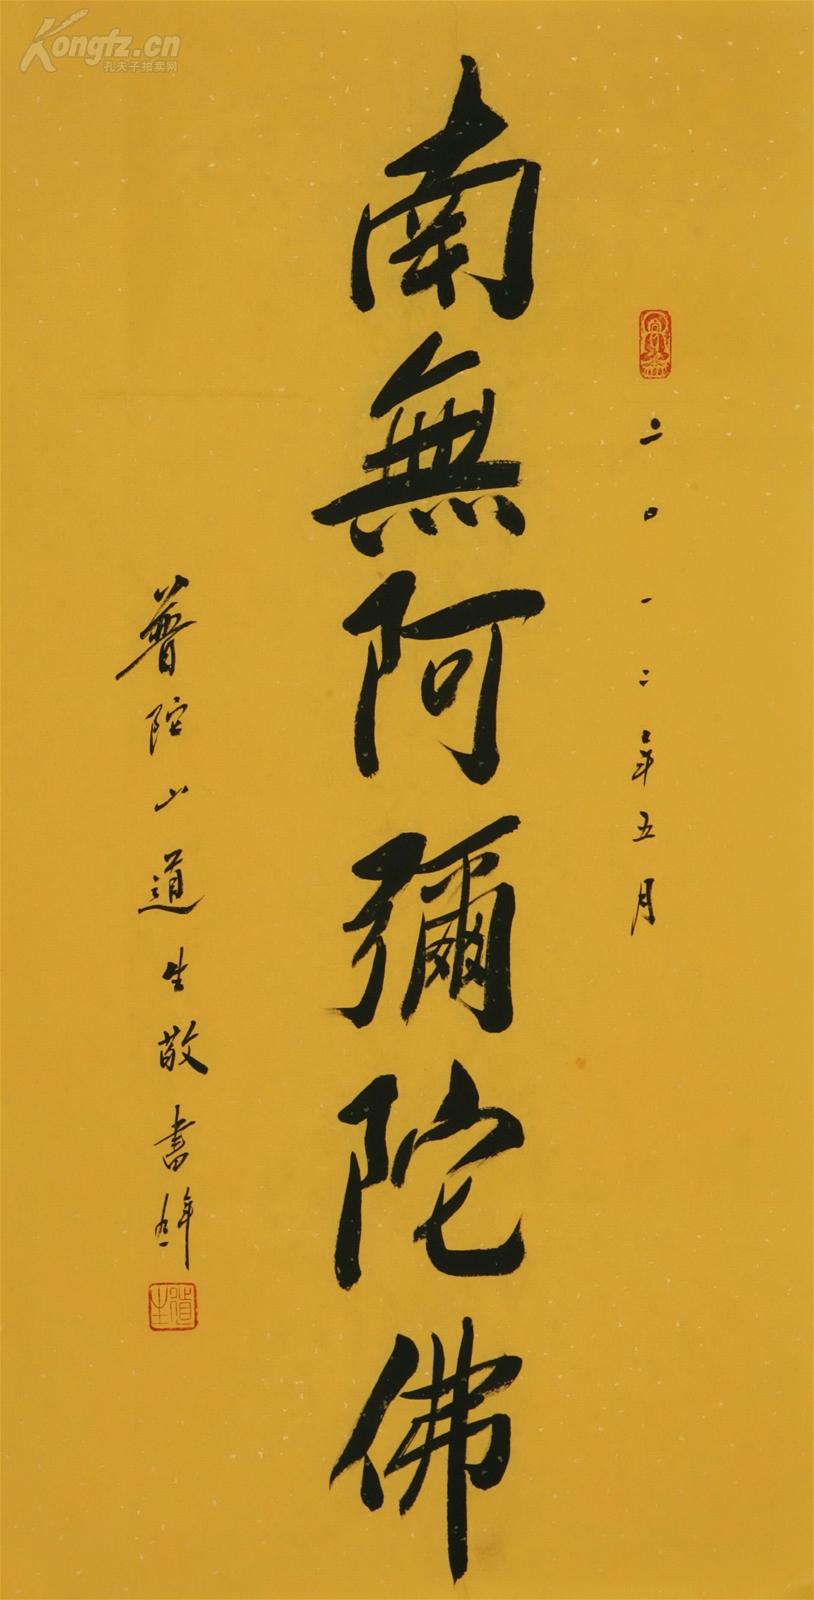 Kongfz.cn
孔夫子拍卖网
二〇一二年五月
南無阿彌陀佛
普陀山道生敬書
道生